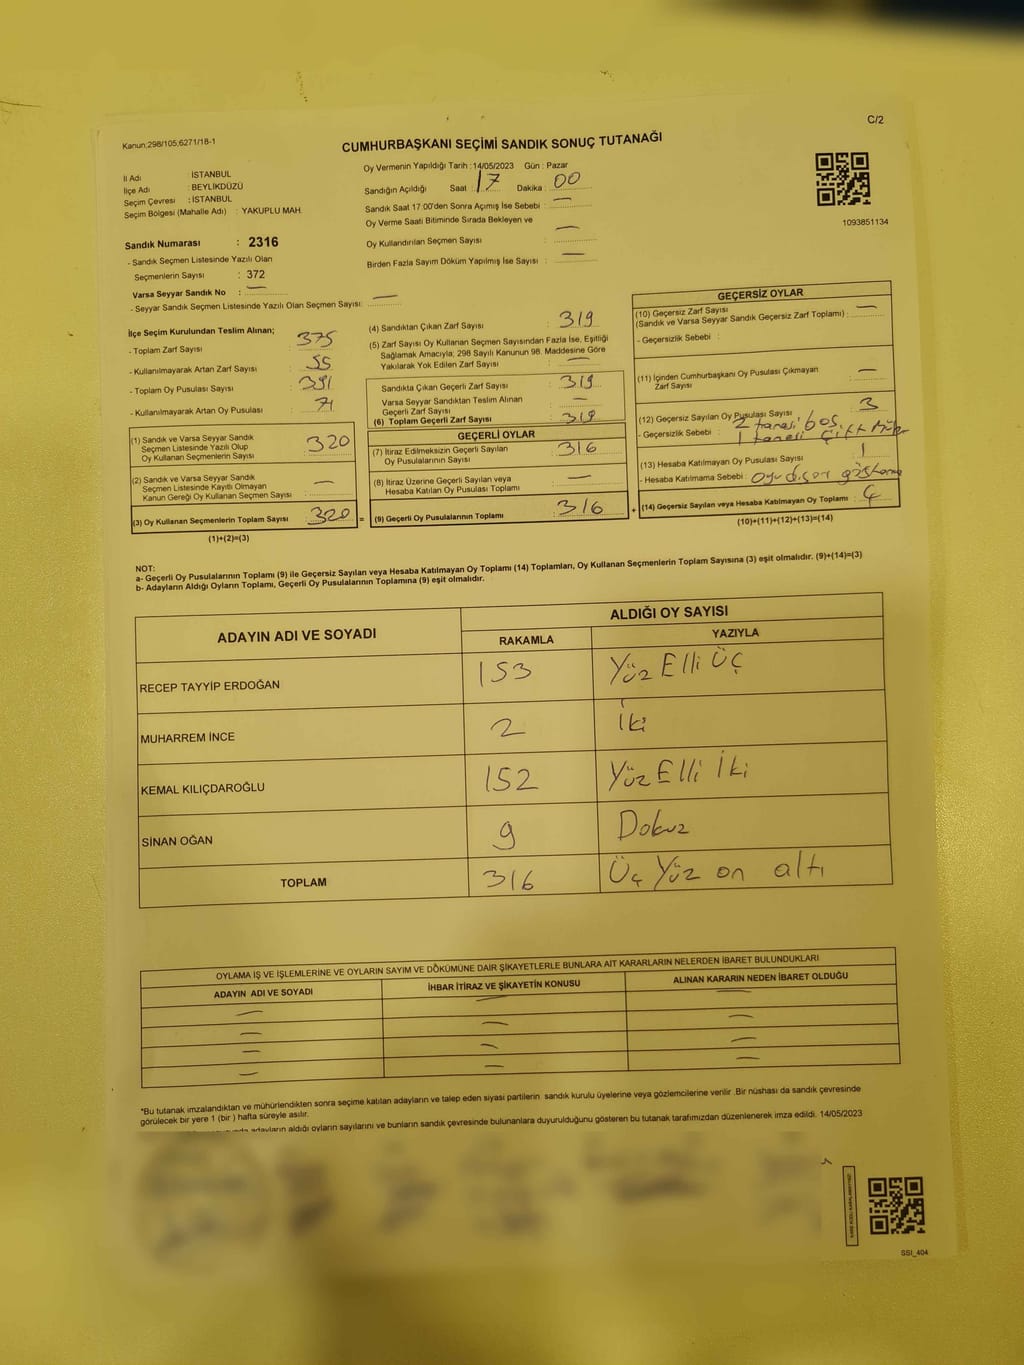 C/2
Kanun:298/105;6271/18-1
CUMHURBAŞKANI SEÇİMİ SANDIK SONUÇ TUTANAĞI
İl Adı : İSTANBUL
İlçe Adı : BEYLİKDÜZÜ
Seçim Çevresi : İSTANBUL
Seçim Bölgesi (Mahalle Adı) : YAKUPLU MAH.
Oy Vermenin Yapıldığı Tarih : 14/05/2023 Gün : Pazar
Sandığın Açıldığı Saat : 17 Dakika : 00
Sandık Saat 17:00'den Sonra Açımış İse Sebebi : —
Oy Verme Saati Bitiminde Sırada Bekleyen ve
Oy Kullandırılan Seçmen Sayısı : —
Birden Fazla Sayım Döküm Yapılmış İse Sayısı : —
1093851134
Sandık Numarası : 2316
- Sandık Seçmen Listesinde Yazılı Olan
Seçmenlerin Sayısı : 372
Varsa Seyyar Sandık No : —
- Seyyar Sandık Seçmen Listesinde Yazılı Olan Seçmen Sayısı: —
İlçe Seçim Kurulundan Teslim Alınan;
- Toplam Zarf Sayısı : 375
- Kullanılmayarak Artan Zarf Sayısı : 55
- Toplam Oy Pusulası Sayısı : 391
- Kullanılmayarak Artan Oy Pusulası : 71
(1) Sandık ve Varsa Seyyar Sandık
Seçmen Listesinde Yazılı Olup
Oy Kullanan Seçmenlerin Sayısı : 320
(2) Sandık ve Varsa Seyyar Sandık
Seçmen Listesinde Kayıtlı Olmayan
Kanun Gereği Oy Kullanan Seçmen Sayısı : —
(3) Oy Kullanan Seçmenlerin Toplam Sayısı : 320 =
(1)+(2)=(3)
(4) Sandıktan Çıkan Zarf Sayısı : 319
(5) Zarf Sayısı Oy Kullanan Seçmen Sayısından Fazla İse, Eşitliği
Sağlamak Amacıyla; 298 Sayılı Kanunun 98. Maddesine Göre
Yakılarak Yok Edilen Zarf Sayısı : —
Sandıkta Çıkan Geçerli Zarf Sayısı : 319
Varsa Seyyar Sandıktan Teslim Alınan
Geçerli Zarf Sayısı : —
(6) Toplam Geçerli Zarf Sayısı : 319
GEÇERLİ OYLAR
(7) İtiraz Edilmeksizin Geçerli Sayılan
Oy Pusulalarının Sayısı : 316
(8) İtiraz Üzerine Geçerli Sayılan veya
Hesaba Katılan Oy Pusulası Toplamı : —
(9) Geçerli Oy Pusulalarının Toplamı : 316 +
GEÇERSİZ OYLAR
(10) Geçersiz Zarf Sayısı
(Sandık ve Varsa Seyyar Sandık Geçersiz Zarf Toplamı) : —
- Geçersizlik Sebebi :
(11) İçinden Cumhurbaşkanı Oy Pusulası Çıkmayan
Zarf Sayısı : —
(12) Geçersiz Sayılan Oy Pusulası Sayısı : 3
- Geçersizlik Sebebi : 2 tanesi boş
1 tanesi Çift Mühür
(13) Hesaba Katılmayan Oy Pusulası Sayısı : 1
- Hesaba Katılmama Sebebi : oyu dışarı
(14) Geçersiz Sayılan veya Hesaba Katılmayan Oy Toplamı : 4
(10)+(11)+(12)+(13)=(14)
NOT:
a- Geçerli Oy Pusulalarının Toplamı (9) ile Geçersiz Sayılan veya Hesaba Katılmayan Oy Toplamı (14) Toplamları, Oy Kullanan Seçmenlerin Toplam Sayısına (3) eşit olmalıdır. (9)+(14)=(3)
b- Adayların Aldığı Oyların Toplamı, Geçerli Oy Pusulalarının Toplamına (9) eşit olmalıdır.
ADAYIN ADI VE SOYADI ALDIĞI OY SAYISI
RAKAMLA YAZIYLA
RECEP TAYYİP ERDOĞAN 153 Yüz Elli Üç
MUHARREM İNCE 2 İki
KEMAL KILIÇDAROĞLU 152 Yüz Elli İki
SİNAN OĞAN 9 Dokuz
TOPLAM 316 Üç Yüz on altı
OYLAMA İŞ VE İŞLEMLERİNE VE OYLARIN SAYIM VE DÖKÜMÜNE DAİR ŞİKAYETLERLE BUNLARA AİT KARARLARIN NELERDEN İBARET BULUNDUKLARI
ADAYIN ADI VE SOYADI İHBAR İTİRAZ VE ŞİKAYETİN KONUSU ALINAN KARARIN NEDEN İBARET OLDUĞU
— — —
— — —
— — —
— — —
*Bu tutanak imzalandıktan ve mühürlendikten sonra seçime katılan adayların ve talep eden siyasi partilerin sandık kurulu üyelerine veya gözlemcilerine verilir .Bir nüshası da sandık çevresinde
görülecek bir yere 1 (bir ) hafta süreyle asılır.
adayların aldığı oyların sayılarını ve bunların sandık çevresinde bulunanlara duyurulduğunu gösteren bu tutanak tarafımızdan düzenlenerek imza edildi. 14/05/2023
SSI_404